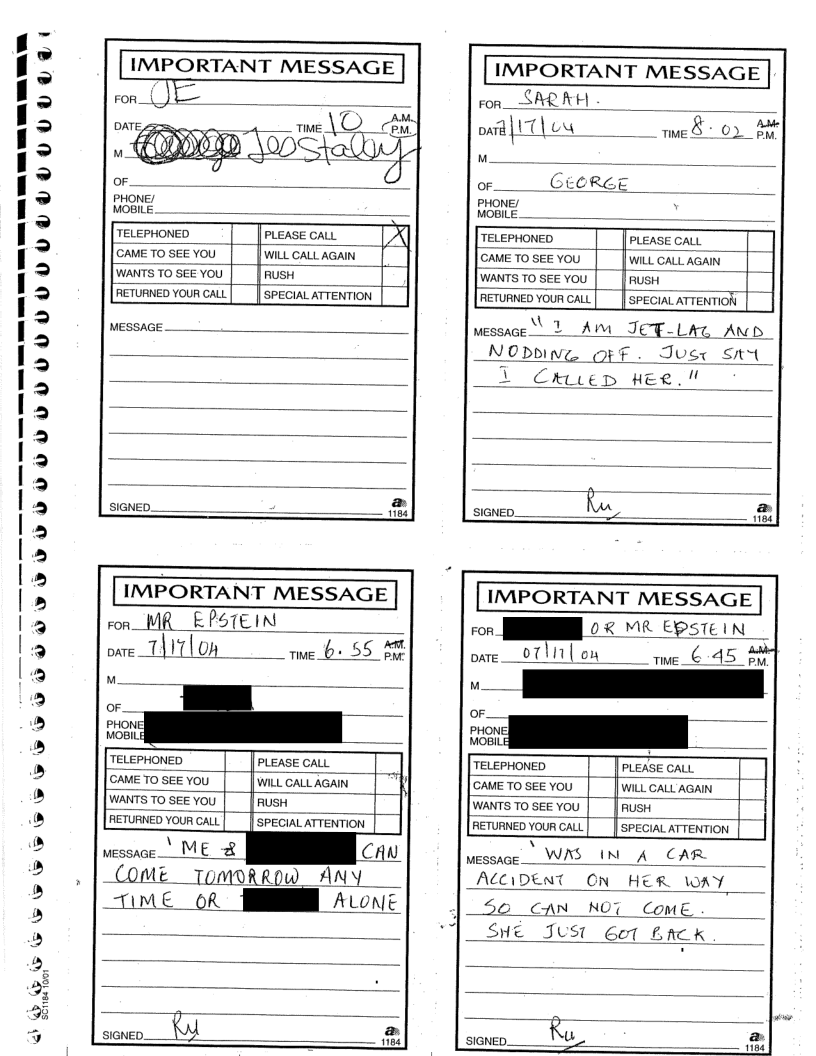 IMPORTANT MESSAGE
FOR JE
DATE TIME 10 A.M. P.M.
M Jes Staley
OF
PHONE/
MOBILE
TELEPHONED PLEASE CALL X
CAME TO SEE YOU WILL CALL AGAIN
WANTS TO SEE YOU RUSH
RETURNED YOUR CALL SPECIAL ATTENTION
MESSAGE
SIGNED
a 1184
IMPORTANT MESSAGE
FOR SARAH.
DATE 7/17/04 TIME 8.02 A.M. P.M.
M
OF GEORGE
PHONE/
MOBILE
TELEPHONED PLEASE CALL
CAME TO SEE YOU WILL CALL AGAIN
WANTS TO SEE YOU RUSH
RETURNED YOUR CALL SPECIAL ATTENTION
MESSAGE "I AM JET-LAG AND
NODDING OFF. JUST SAY
I CALLED HER."
SIGNED Ru
a 1184
IMPORTANT MESSAGE
FOR MR EPSTEIN
DATE 7/17/04 TIME 6.55 A.M. P.M.
M
OF
PHONE
MOBILE
TELEPHONED PLEASE CALL
CAME TO SEE YOU WILL CALL AGAIN
WANTS TO SEE YOU RUSH
RETURNED YOUR CALL SPECIAL ATTENTION
MESSAGE 'ME & CAN
COME TOMORROW ANY
TIME OR ALONE
SIGNED Ru
a 1184
IMPORTANT MESSAGE
FOR OR MR EPSTEIN
DATE 07/17/04 TIME 6.45 A.M. P.M.
M
OF
PHONE
MOBILE
TELEPHONED PLEASE CALL
CAME TO SEE YOU WILL CALL AGAIN
WANTS TO SEE YOU RUSH
RETURNED YOUR CALL SPECIAL ATTENTION
MESSAGE 'WAS IN A CAR
ACCIDENT ON HER WAY
SO CAN NOT COME.
SHE JUST GOT BACK.
SIGNED Ru
a 1184
SC1184 10/01